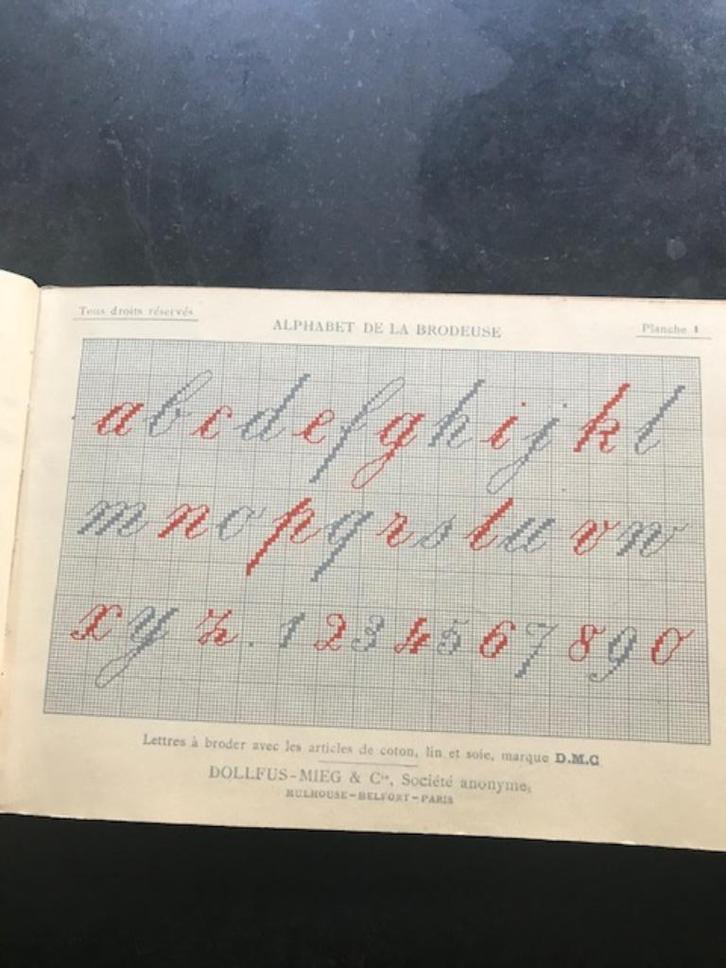 Tous droits réservés
ALPHABET DE LA BRODEUSE
Planche 1
a b c d e f g h i j k l
m n o p q r s t u v w
x y z . 1 2 3 4 5 6 7 8 9 0
Lettres à broder avec les articles de coton, lin et soie, marque D.M.C
DOLLFUS-MIEG & Cie, Société anonyme,
MULHOUSE-BELFORT-PARIS